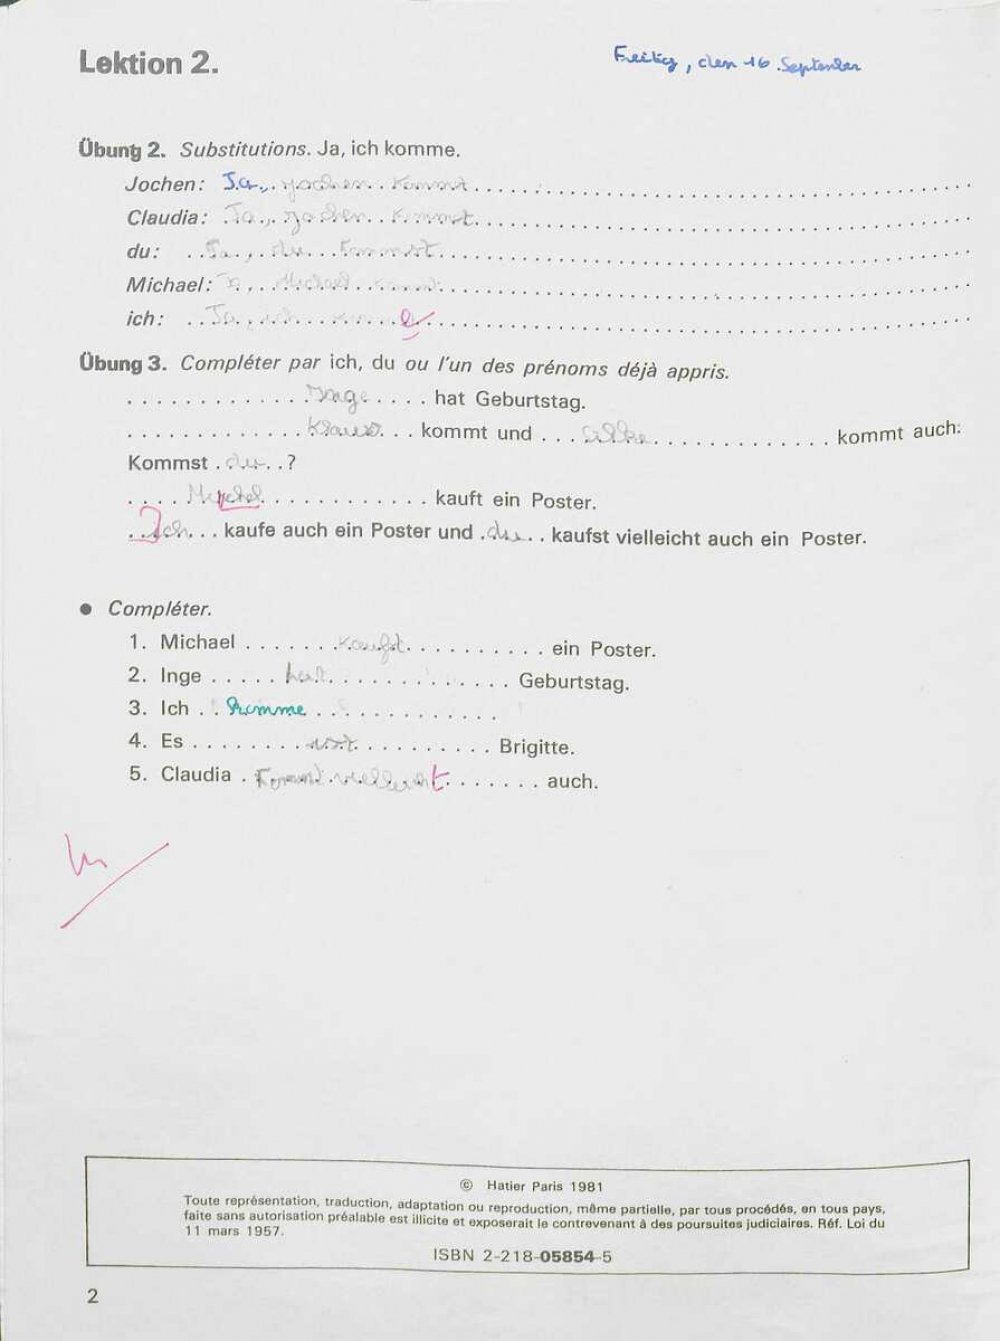 Lektion 2.
Freitag, den 16 September
Übung 2. Substitutions. Ja, ich komme.
Jochen: Ja, Jochen kommt
Claudia: Ja, Jochen kommt
du: Ja, du kommst
Michael: Ja, Michael kommt
ich: Ja, ich komme
Übung 3. Compléter par ich, du ou l'un des prénoms déjà appris.
Inge hat Geburtstag.
Klaus kommt und Silke kommt auch:
Kommst du ?
Michael kauft ein Poster.
Ich kaufe auch ein Poster und du kaufst vielleicht auch ein Poster.
• Compléter.
1. Michael kauft ein Poster.
2. Inge hat Geburtstag.
3. Ich komme
4. Es ist Brigitte.
5. Claudia kommt vielleicht auch.
© Hatier Paris 1981
Toute représentation, traduction, adaptation ou reproduction, même partielle, par tous procédés, en tous pays,
faite sans autorisation préalable est illicite et exposerait le contrevenant à des poursuites judiciaires. Réf. Loi du
11 mars 1957.
ISBN 2-218-05854-5
2